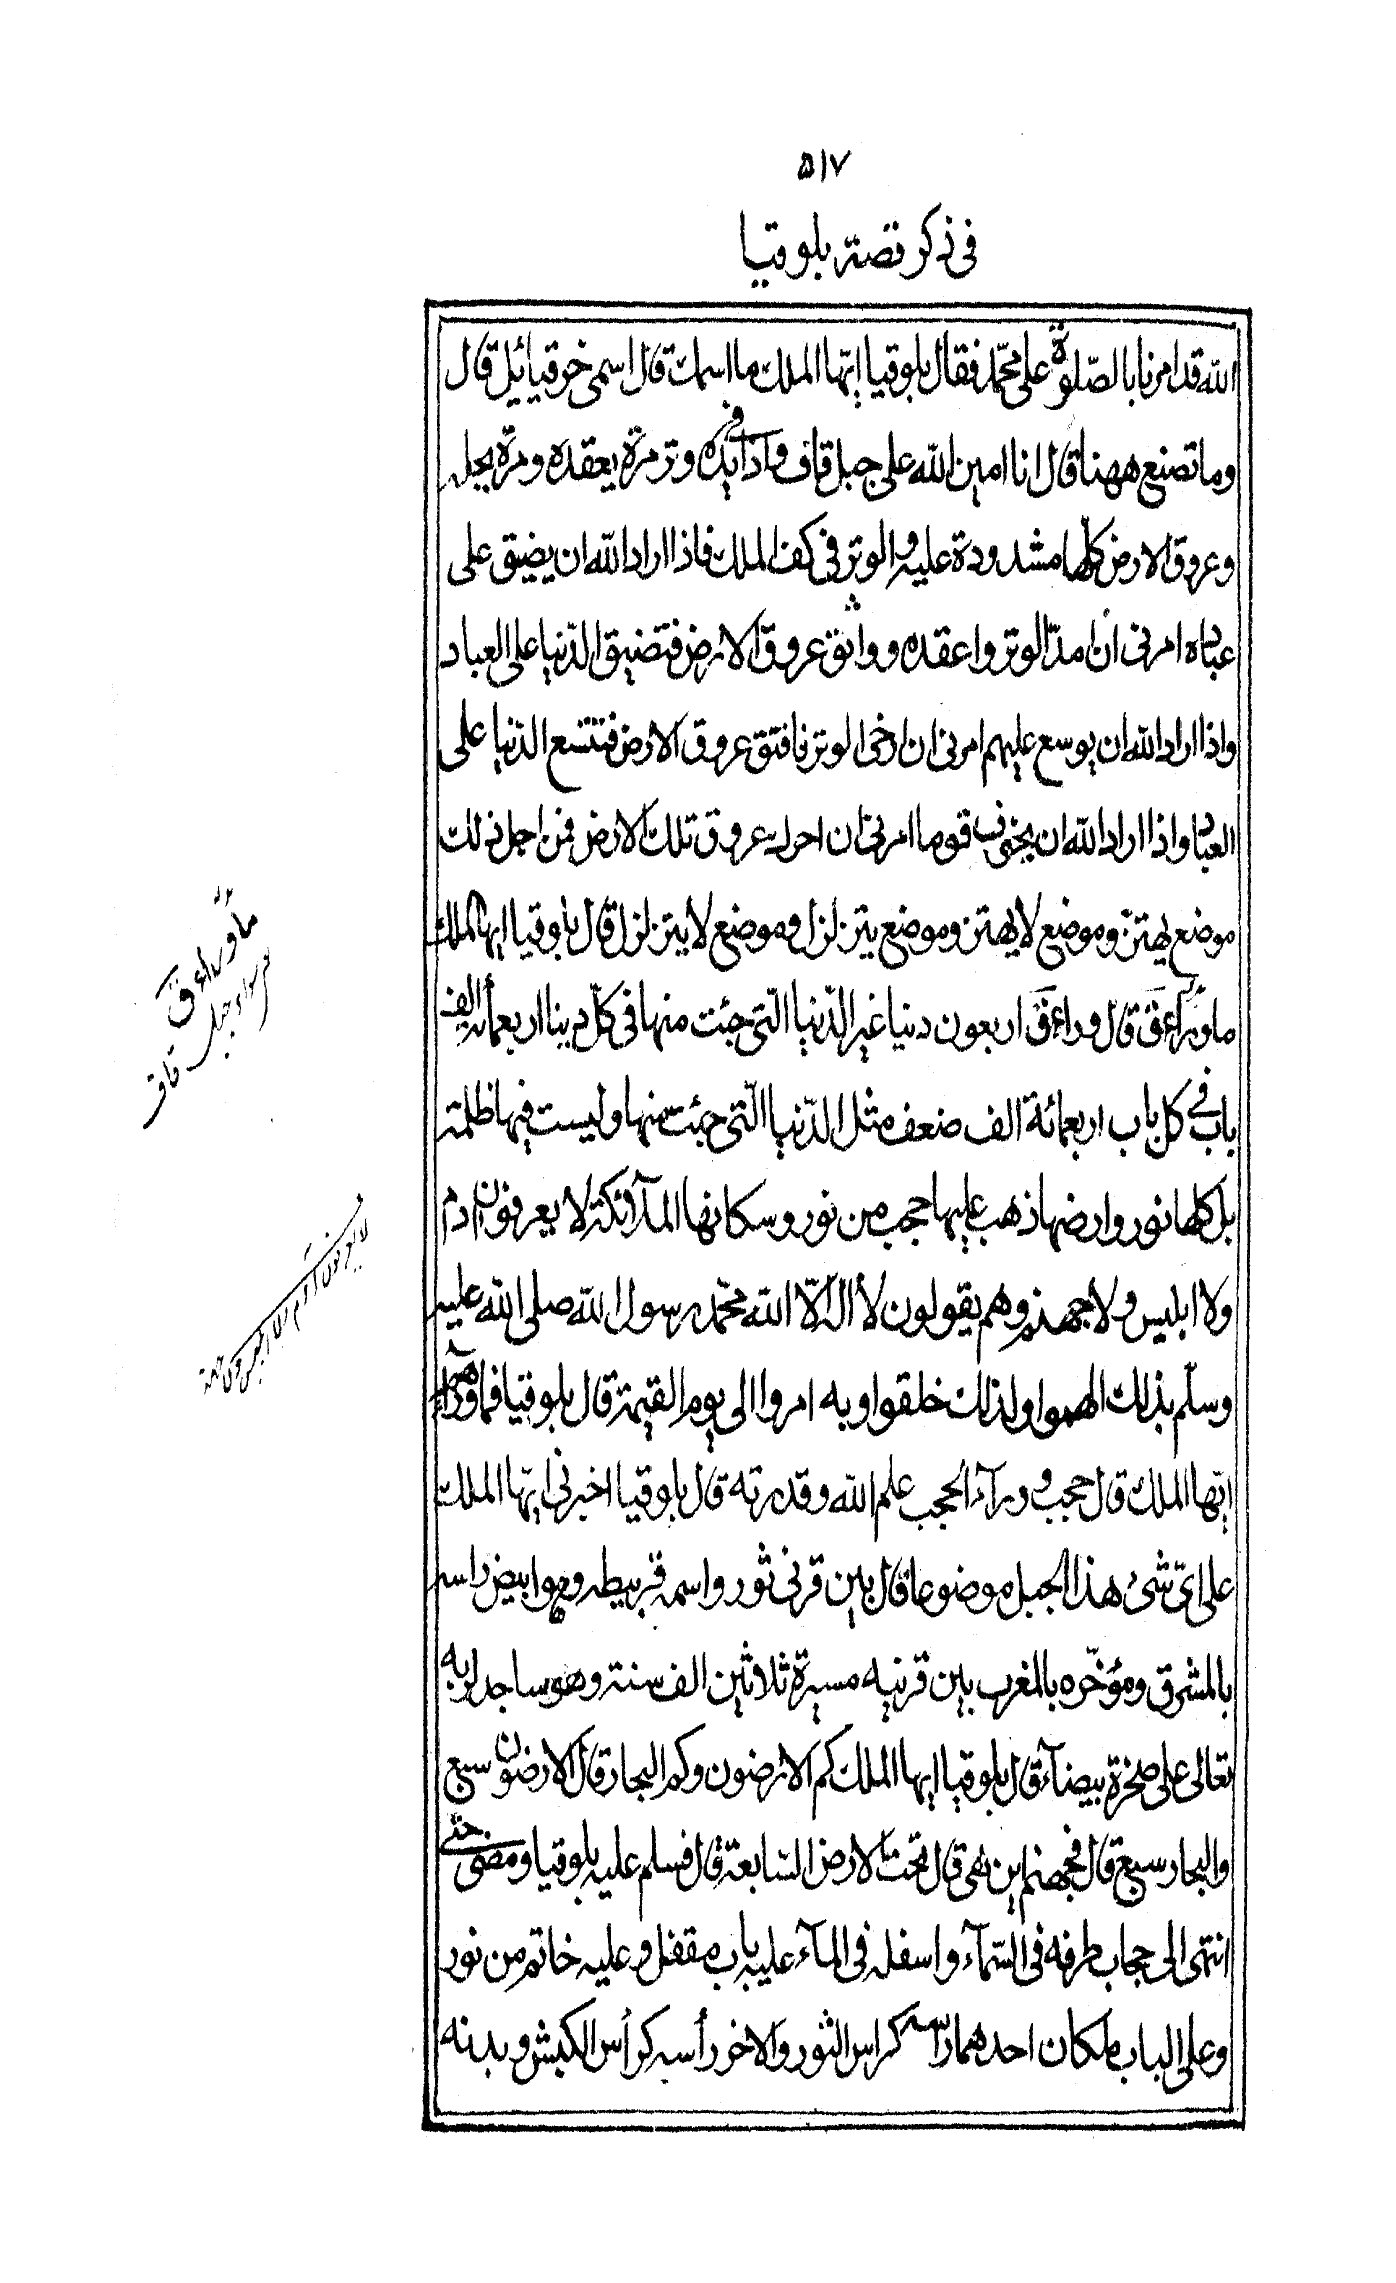 ۵۱۷
فى ذكر قصة بلوقيا
الله قد امرنا بالصّلوة على محمّد فقال بلوقيا ايّها الملك ما اسمك قال اسمى خرقيائيل قال
وما تصنع ههنا قال انا امين الله على جبل قاف واذا فى يده وتر مرة يعقده ومرة يحله
وعروق الارض كلّها مشدودة عليه والوتر فى كف الملك فاذا اراد الله ان يضيق على
عباده امرنى ان امدّ الوتر واعقده وواثق عروق الارض فتضيق الدّنيا على العباد
واذا اراد الله ان يوسع عليهم امرنى ان ارخى الوتر فافتق عروق الارض فتتسع الدّنيا على
العباد واذا اراد الله ان يخوف قوما امرنى ان احرك عروق تلك الارض فمن اجل ذلك
موضع يهتز وموضع لا يهتز وموضع يتزلزل وموضع لا يتزلزل قال بلوقيا ايها الملك
ما وراء ق قال وراء ق اربعون دنيا غير الدّنيا الّتى جئت منها فى كلّ دينا اربعمأئة الف
باب فى كل باب اربعمائة الف ضعف مثل الدّنيا الّتى جئت منها وليست فيها ظلمة
بل كلها نور وارضها ذهب عليها حجب من نور وسكانها الملآئكة لا يعرفون ادم
ولا ابليس ولا جهنم وهم يقولون لا اله الّا الله محمّد رسول الله صلى الله عليه
وسلّم بذلك الهموا ولذلك خلقوا وبه امروا الى يوم القيمة قال بلوقيا فما ورآءهم
ايّها الملك قال حجب وورآء الحجب علم الله وقدرته قال بلوقيا اخبرنى ايّها الملك
على اىّ شئ هذا الجبل موضوعا قال بين قرنى ثور واسمه قربيطه وهو ابيض راسه
بالمشرق ومؤخّره بالمغرب بين قرنيه مسيرة ثلاثين الف سنة وهو ساجد لربه
تعالى على صخرة بيضآء قال بلوقيا ايها الملك كم الارضون وكم البحار قال الارضون سبع
والبحار سبع قال فجهنم اين هى قال تحت الارض السّابعة قال فسلم عليه بلوقيا ومضى حتّى
انتهى الى حجاب طرفه فى السّمآء واسفله فى المآء عليه باب مقفل وعليه خاتم من نور
وعلى الباب ملكان احدهما راسه كراس الثور والاخر رأسه كرأس الكبش وبدنه
ماوراء ق
جبل قاف
لا يعرفون آدم ولا ابليس ولا جهنم